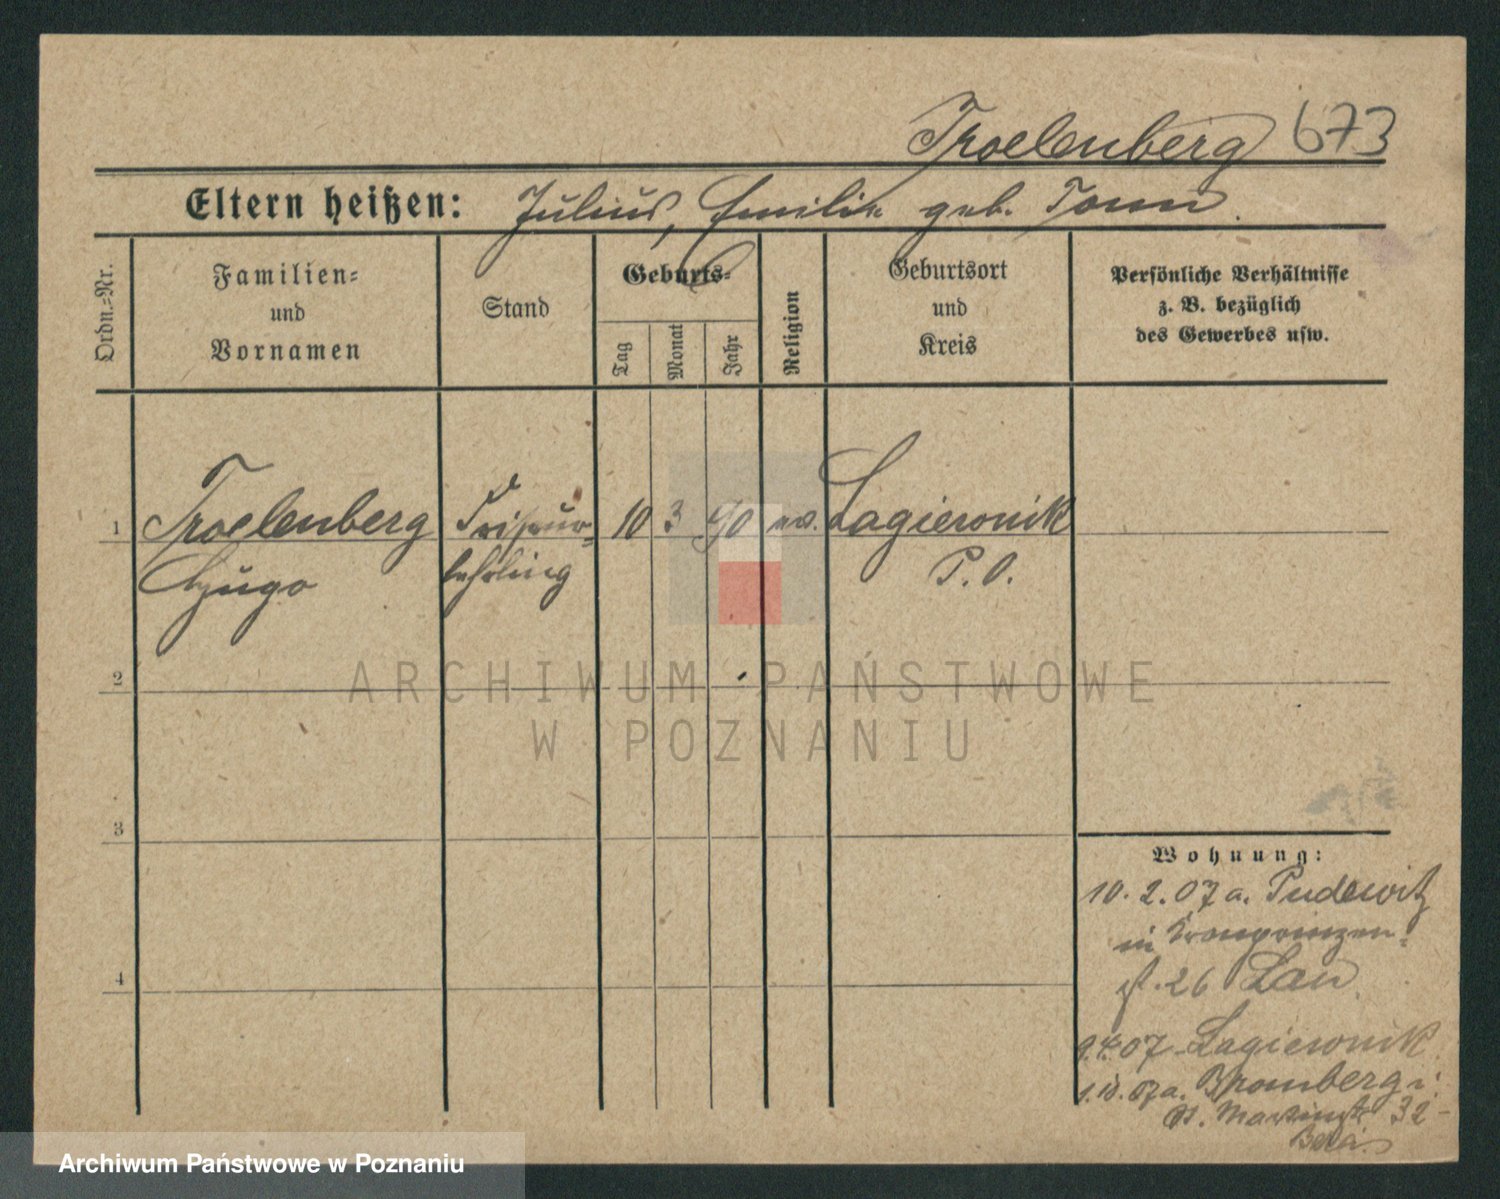 Troelenberg 673
Eltern heißen: Julius, Emilie geb. Tonn.
Ordn.=Nr.
Familien=
und
Vornamen
Stand
Geburts=
Tag
Monat
Jahr
Religion
Geburtsort
und
Kreis
Persönliche Verhältnisse
z. B. bezüglich
des Gewerbes usw.
1 Troelenberg Friseur= 10 3 90 ev. Lagiewnik
Hugo lehrling P. O.
2
3
4
Wohnung:
10. 2. 07 a. Pudewitz
in Kronprinzen=
st. 26 Lau
9.4.07 Lagiewnik
1.10.07 a. Bromberg i.
St. Martinstr 32
ARCHIWUM PAŃSTWOWE
W POZNANIU
Archiwum Państwowe w Poznaniu